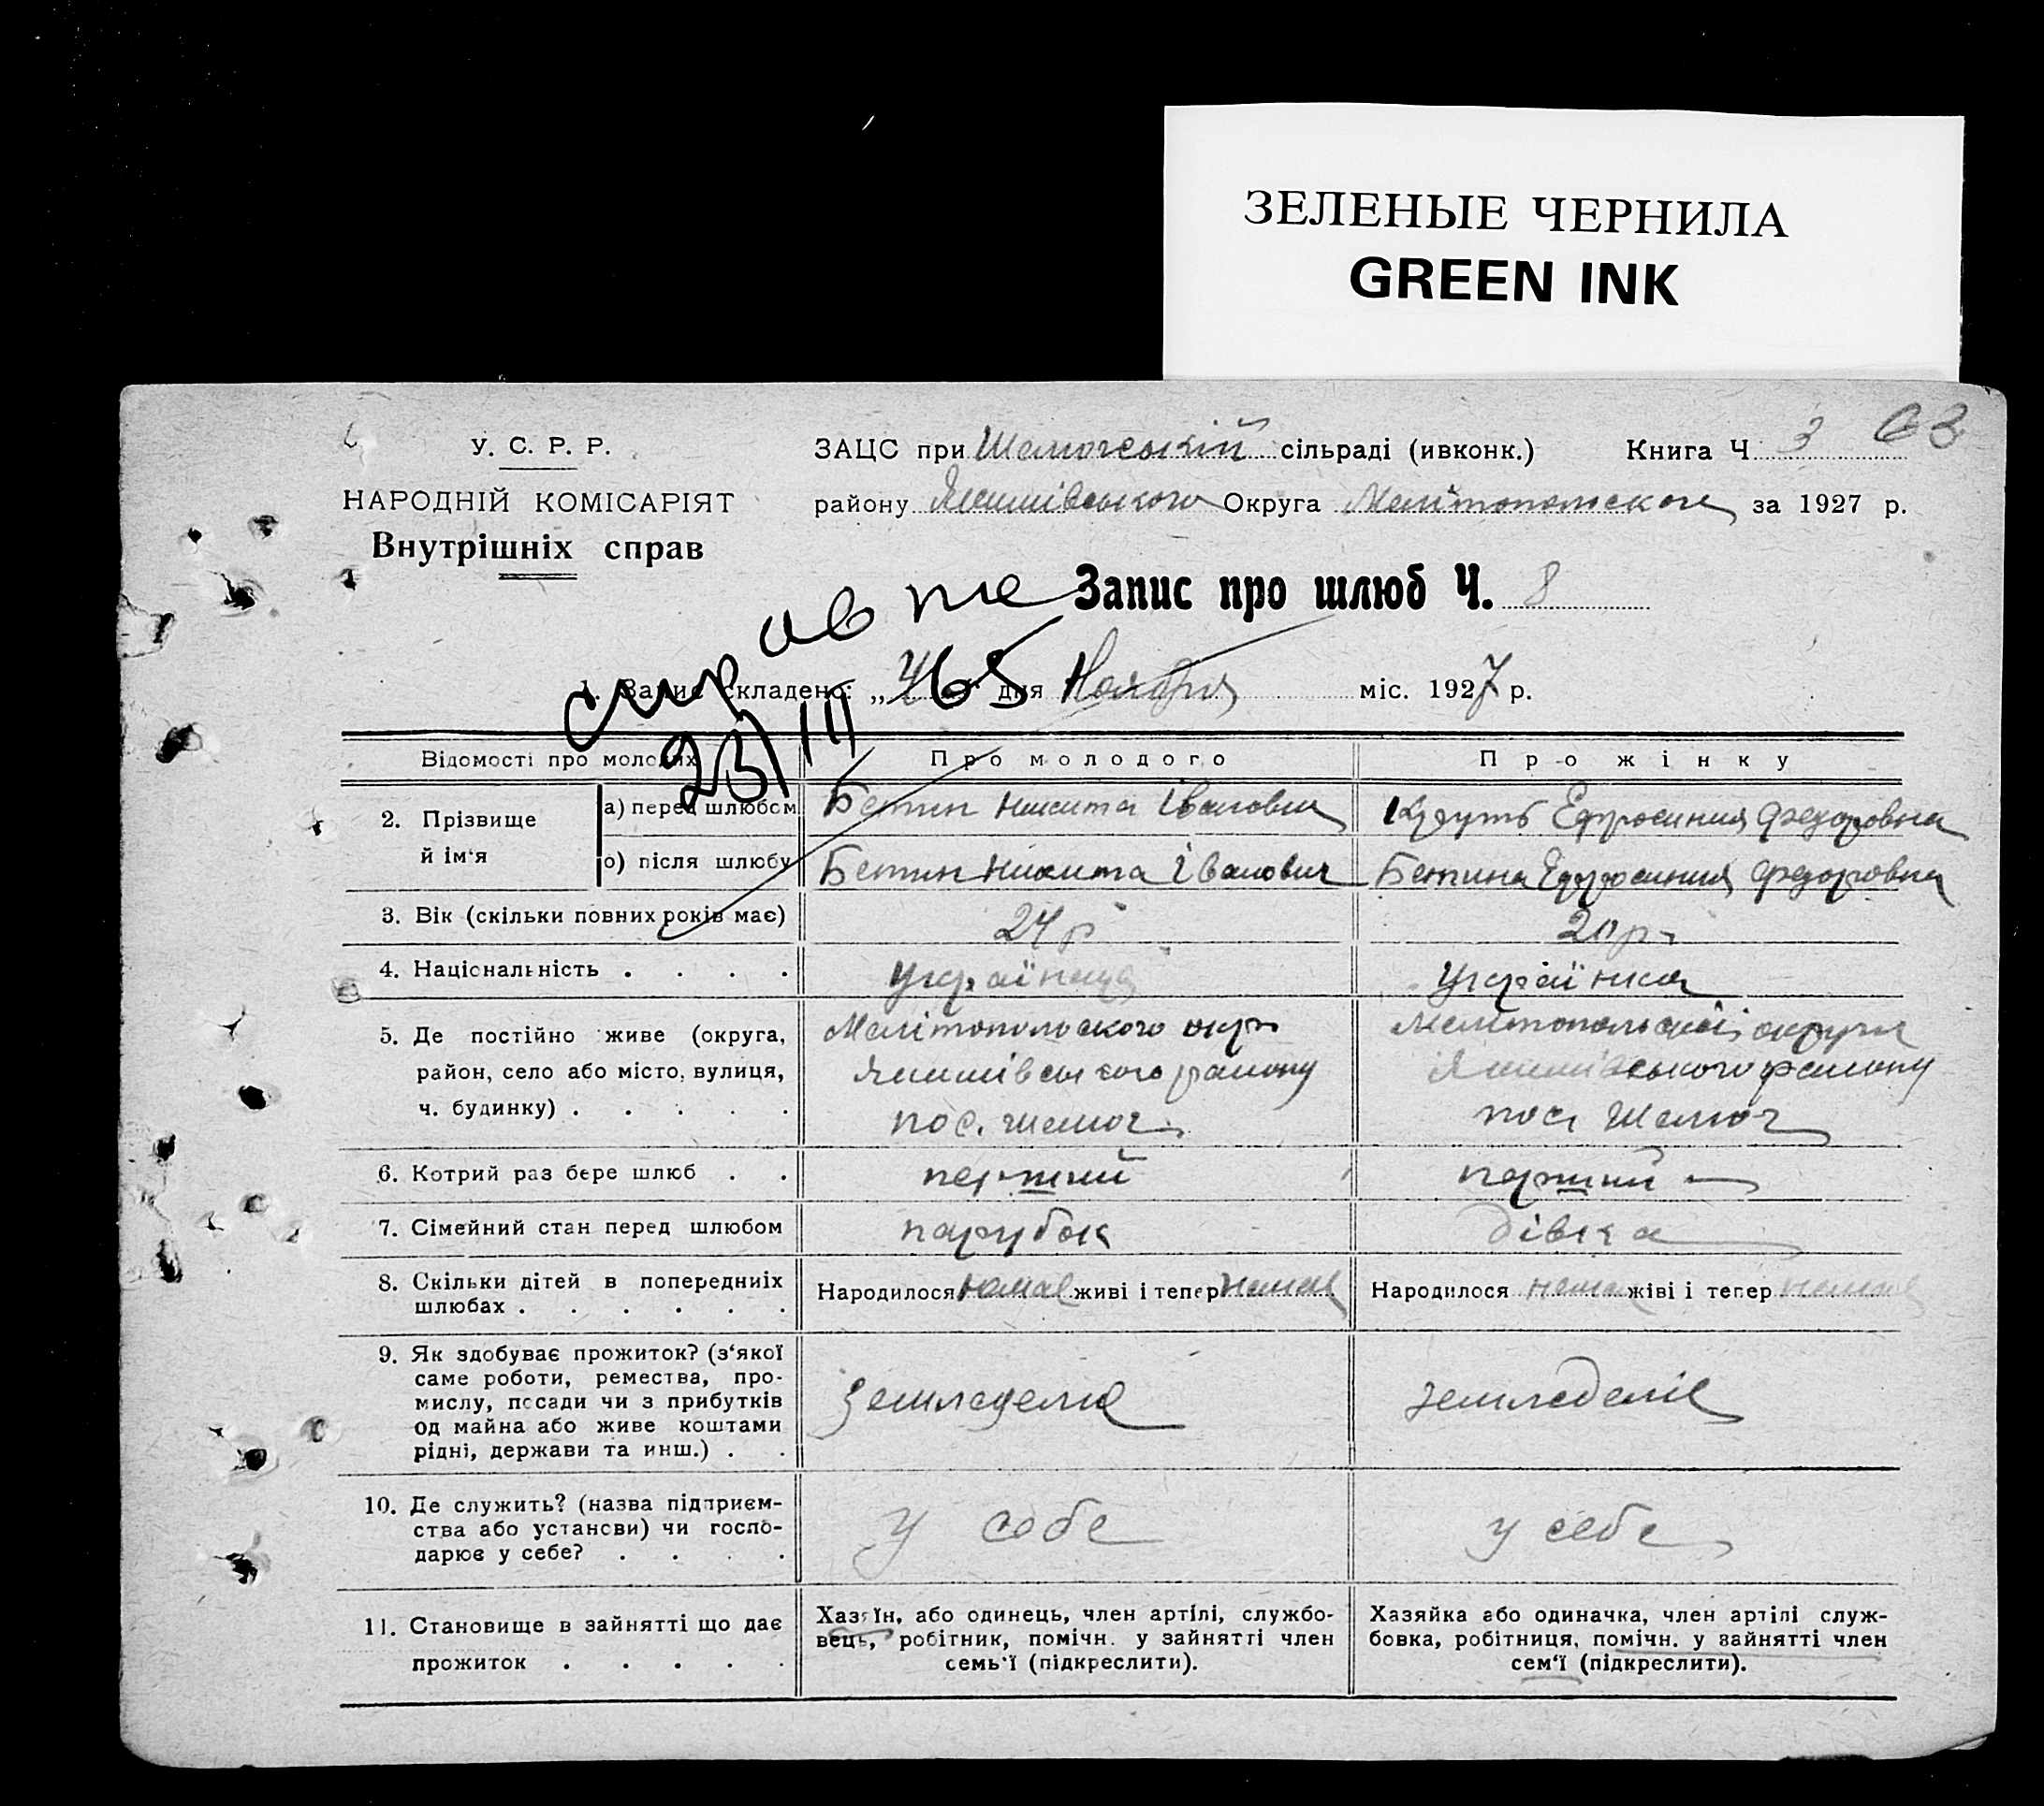 ЗЕЛЕНЫЕ ЧЕРНИЛА
GREEN INK
63
У. С. Р. Р.
НАРОДНІЙ КОМІСАРІЯТ
Внутрішніх справ
ЗАЦС при сільраді (ивконк.) Книга Ч 3
району Якимівського Округа Мелітопольского за 1927 р.
Запис про шлюб Ч. 8
справка 65
23/III
1. Запис складено: „4" дня Ноября міс. 1927 р.
Відомості про молодих Про молодого Про жінку
2. Прізвище й ім'я
а) перед шлюбом Бетин Никита Іванович Крути Ефросиния Федоровна
о) після шлюбу Бетин Никита Іванович Бетина Ефросиния Федоровна
3. Вік (скільки повних років має) 24 р 20 р.
4. Національність . . . . українец українка
5. Де постійно живе (округа, Мелітопольского окр Мелітопольскої округи
район, село або місто, вулиця, Якимівського району Якимівського району
ч. будинку) . . . . . пос. Шелюг пос. Шелюг
6. Котрий раз бере шлюб . . перший перший
7. Сімейний стан перед шлюбом парубок дівка
8. Скільки дітей в попередниіх
шлюбах . . . . . . Народилося немає живі і тепер немає Народилося немає жіві і тепер немає
9. Як здобуває прожиток? (з'якої
саме роботи, ремества, про-
мислу, посади чи з прибутків
од майна або живе коштами
рідні, держави та инш.) . . земледеліє земледеліє
10. Де служить? (назва підприєм-
ства або установи) чи госпо-
дарює у себе? . . . . у себе у себе
11. Становище в зайнятті що дає
прожиток . . . . .
Хазяїн, або одинець, член артілі, службо-
вець, робітник, помічн. у зайнятті член
семь'ї (підкреслити).
Хазяйка або одиначка, член артілі служ-
бовка, робітниця, помічн. у зайнятті член
сем'ї (підкреслити).